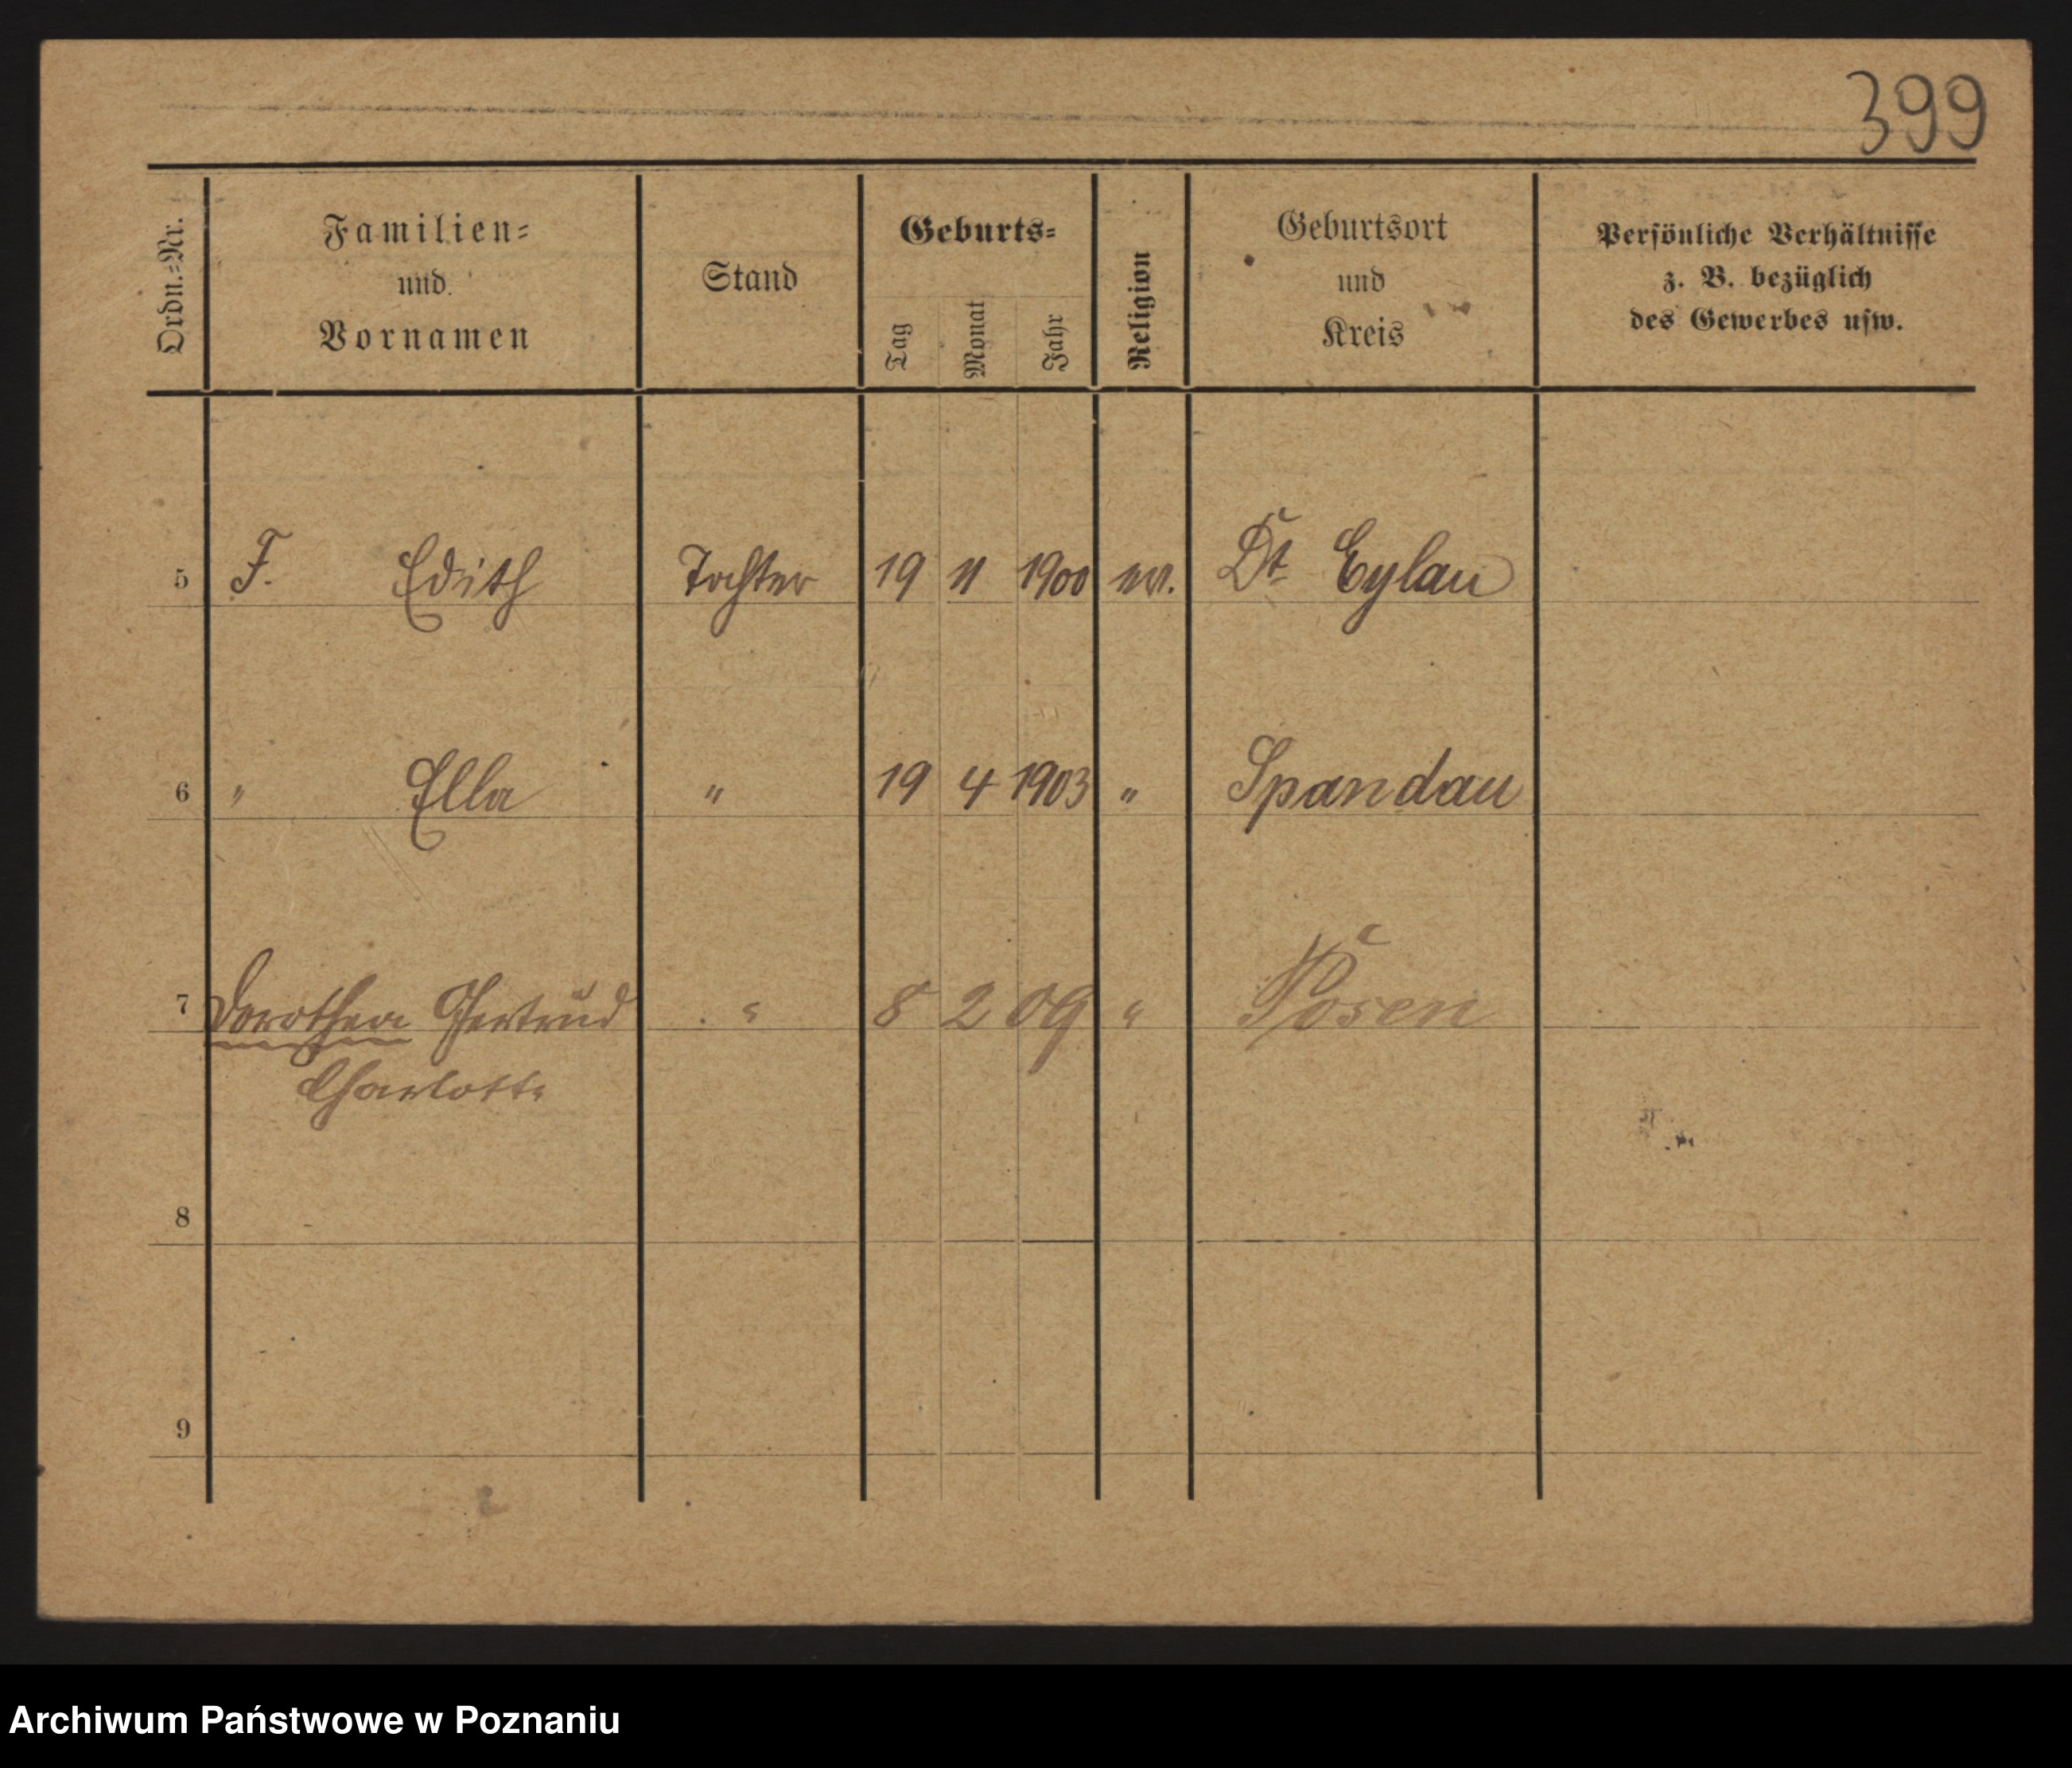 399
Ordn.-Nr.
Familien-
und
Vornamen
Stand
Geburts-
Tag
Monat
Jahr
Religion
Geburtsort
und
Kreis
Persönliche Verhältnisse
z. B. bezüglich
des Gewerbes usw.
5 F. Edith Tochter 19 11 1900 ev. Dt. Eylau
6 " Ella " 19 4 1903 " Spandau
7 Dorothea Gertrud " 8 2 09 " Posen
Charlotte
8
9
Archiwum Państwowe w Poznaniu